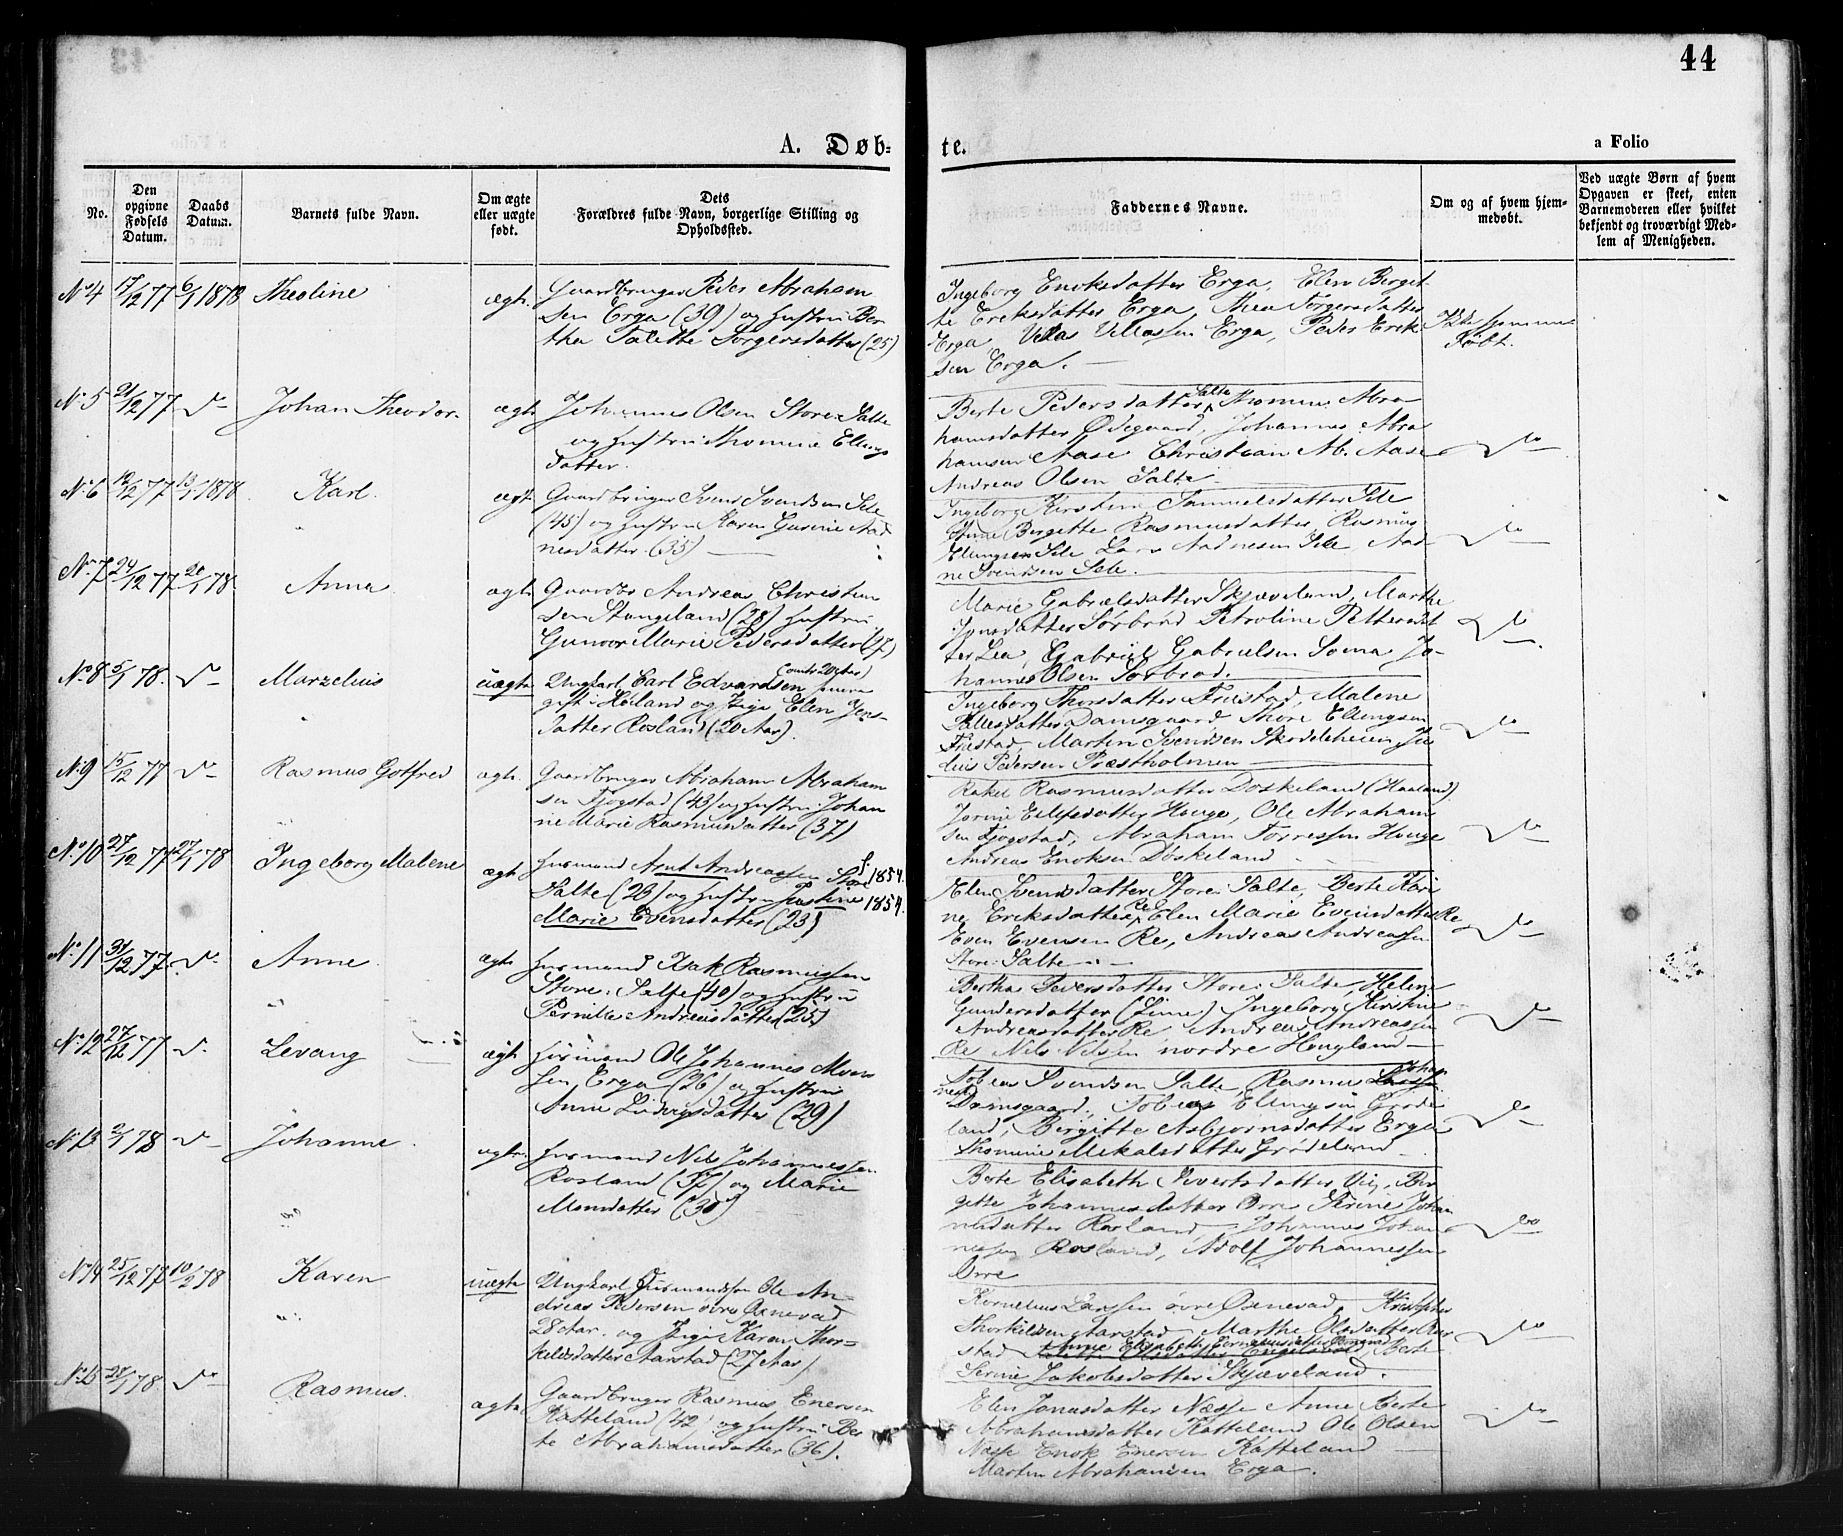 44
A. Døb-
te.
a Folio
No.
Den
opgivne
Fødsels
Datum.
Daabs
Datum.
Barnets fulde Navn.
Om ægte
eller uægte
født.
Dets
Forældres fulde Navn, borgerlige Stilling og
Opholdssted.
Faddernes Navne.
Om og af hvem hjem-
medøbt.
Ved uægte Børn af hvem
Opgaven er skeet, enten
Barnemoderen eller hvilket
bekjendt og troværdigt Med-
lem af Menigheden.
No 4 17/12 77 6/1 1878 Theoline ægt. Gaardbruger Peder Abraham
sen Erga (39) og Hustru Ber
tha Talette Torgersdatter (25)
Ingeborg Enoksdatter Erga, Elen Berget-
te Eriksdatter Erga, Thea Torgersdatter
Erga, Villas Villassen Erga, Peder Erik
sen Erga.
Ikke hjemme
døbt.
No 5 21/12 77 do Johan Theodor ægt. Johannes Olsen Store Salte
og Hustru Thomine Ellings
datter.
Berte Pedersdatter Salte, Thomine Abra
hamsdatter Ødegaard, Johannes Abra
hamsen Aase Christian Ab. Aase
Andreas Olsen Salte
do
No 6 12/12 77 13/1 1878 Karl ægt. Gaardbruger Svend Svendsen Sele
(45) og Hustru Karen Gurine Aad
nesdatter (35)
Ingeborg Kirstine Samuelsdatter Sele
Birgitte Rasmusdatter, Rasmus
Ellingsen Sele Lars Aadnesen Sele Aad
ne Svendsen Sele.
do
No 7 24/12 77 20/1 78 Anna ægt. Andreas Christian
sen Stangeland (28) Hustru
Gunvor Marie Pedersdatter
Marie Gabrielsdatter Skjæveland, Marthe
Jonsdatter Sørbrød Petroline Pettersdat
ter Lea, Gabriel Gabrielsen Soma Jo-
hannes Olsen Sørbrød.
do
No 8 5/1 78 do Marzelius uægte Ungkarl Carl Edvardsen
gift. Høiland og Pige Elen Jens-
datter Rosland (20 Aar).
Ingeborg Thorsdatter Friestad, Malene
Pallesdatter Damsgaard Thore Ellingsen
Friestad, Martin Svendsen Skadeheien Ju
lius Pedersen Præstholmen
do
No 9 15/12 77 do Rasmus Gotfred ægt. Gaardbruger Abraham Abraham
sen Tjøgstad (43) og Hustru Johan
ne Marie Rasmusdatter (37)
Rakel Rasmusdatter Døskeland (Haaland)
Jorine Eilefsdatter Houge, Ole Abraham
sen Tjøgstad, Abraham Torressen Houge
Andreas Enoksen Døskeland
do
No 10 27/12 77 27/1 78 Ingeborg Malene ægt. Husmand Arnt Andreassen Store f. 1854.
Salte (23) og Hustru Justine 1854.
Marie Evensdatter (23)
Elen Svendsdatter Store Salte, Berte Kari
ne Eriksdatter Re, Elen Marie Evensdatter Re
Even Evensen Re, Andreas Andreassen
Store Salte
do
No 11 31/12 77. do Anne ægt. Husmand Isak Rasmussen
Store Salte (40) og Hustru
Pernille Andreasdatter (25)
Bertha Pedersdatter Store Salte, Heline
Gundersdatter (Lime) Ingeborg Kirstine
Andreasdatter Re Andreas Andreassen
Re Nils Nilssen nordre Hougland
do
No 12 27/12 77 do Levang ægt. Husmand Ole Johannes Mons
sen, Erga (26) og Hustru
Anne Ludvigsdatter (29)
Tobias Svendsen Salte, Rasmus Johan
Damsgaard, Tobias Ellingsen Grøde
land, Birgitte Asbjørnsdatter Erga
Thomine Mikalsdatter Grødeland
do
No 13 2/1 78 do Johanne ægt. Husmand Nils Johannessen
Rosland (32) og Marie
Monsdatter (30)
Berte Elisabeth Sivertsdatter Vig, Bir
gitte Johannesdatter Orre Serine Johan
nesdatter Rosland, Johannes Johan
nessen Rosland, Adolf Johannessen
Orre
do
No 14 25/12 77 10/2 78 Karen uægte Ungkarl Husmandssøn Ole An-
dreas Pedersen øvre Øxnevad
28 Aar. og Pige Karen Thor-
kildsdatter Aarstad (27 Aar)
Kornelius Larssen øvre Øxnevad, Kristopher
Thorkildsen Aarstad Marthe Olsdatter Aar
stad Anne Elisabeth Cornelius datter Øxnevad Berte
Serine Jakobsdatter Skjæveland.
do
No 15 20/1 78 do Rasmus. ægte Gaardbruger Rasmus Enersen
Katteland (42) og Hustru Ber
te Abrahamsdatter (36).
Elen Jonasdatter Næsse Anne Berte
Abrahamsdatter Katteland Ole Olsen
Næsse Enok Enersen Katteland
Martin Abrahamsen Erga.
do